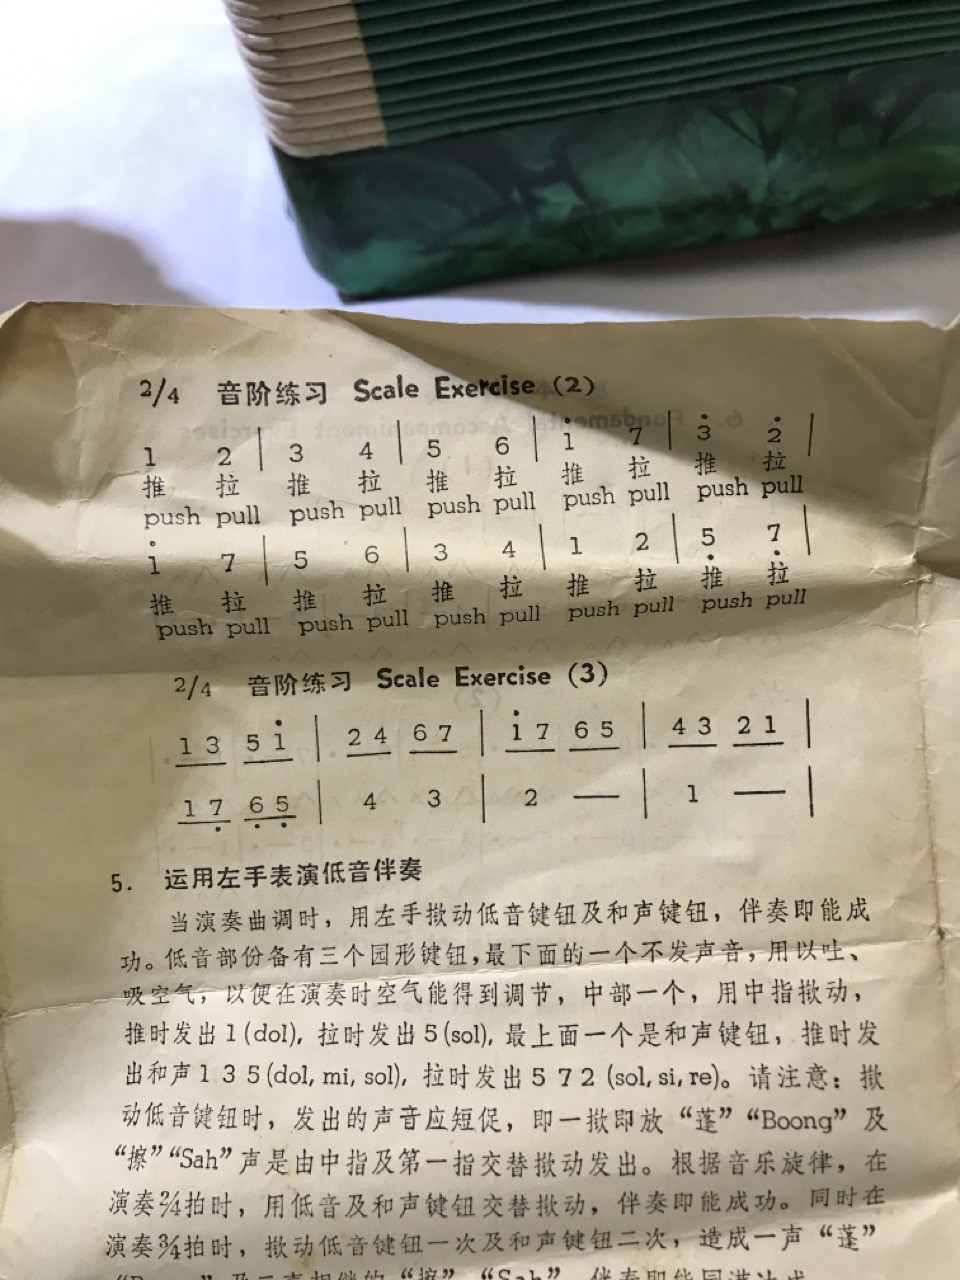 2/4 音阶练习 Scale Exercise (2)
1 2 | 3 4 | 5 6 | i̇ 7 | 3̇ 2̇ |
推 拉 推 拉 推 拉 推 拉 推 拉
push pull push pull push pull push pull push pull
i̇ 7 | 5 6 | 3 4 | 1 2 | 5̣ 7̣ |
推 拉 推 拉 推 拉 推 拉 推 拉
push pull push pull push pull push pull push pull
2/4 音阶练习 Scale Exercise (3)
1 3 5 i̇ | 2 4 6 7 | i̇ 7 6 5 | 4 3 2 1 |
1 7̣ 6̣ 5̣ | 4 3 | 2 — | 1 — |
5. 运用左手表演低音伴奏
当演奏曲调时，用左手揿动低音键钮及和声键钮，伴奏即能成
功。低音部份备有三个园形键钮，最下面的一个不发声音，用以吐、
吸空气，以便在演奏时空气能得到调节，中部一个，用中指揿动，
推时发出1(dol)，拉时发出5(sol)，最上面一个是和声键钮，推时发
出和声1 3 5(dol, mi, sol)，拉时发出5 7 2 (sol, si, re)。请注意：揿
动低音键钮时，发出的声音应短促，即一揿即放“蓬”“Boong”及
“擦”“Sah”声是由中指及第一指交替揿动发出。根据音乐旋律，在
演奏2/4拍时，用低音及和声键钮交替揿动，伴奏即能成功。同时在
演奏3/4拍时，揿动低音键钮一次及和声键钮二次，造成一声“蓬”